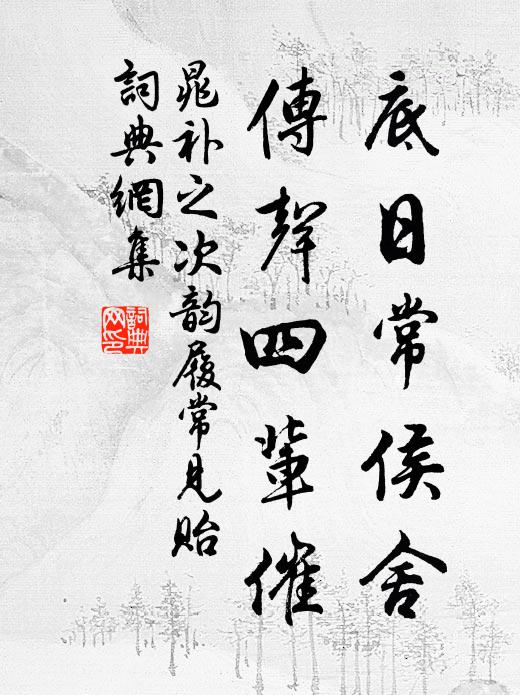 底日常侯舍
傳聲四輩催
晁补之次韵履常見貽
詞典網集
詞典网印